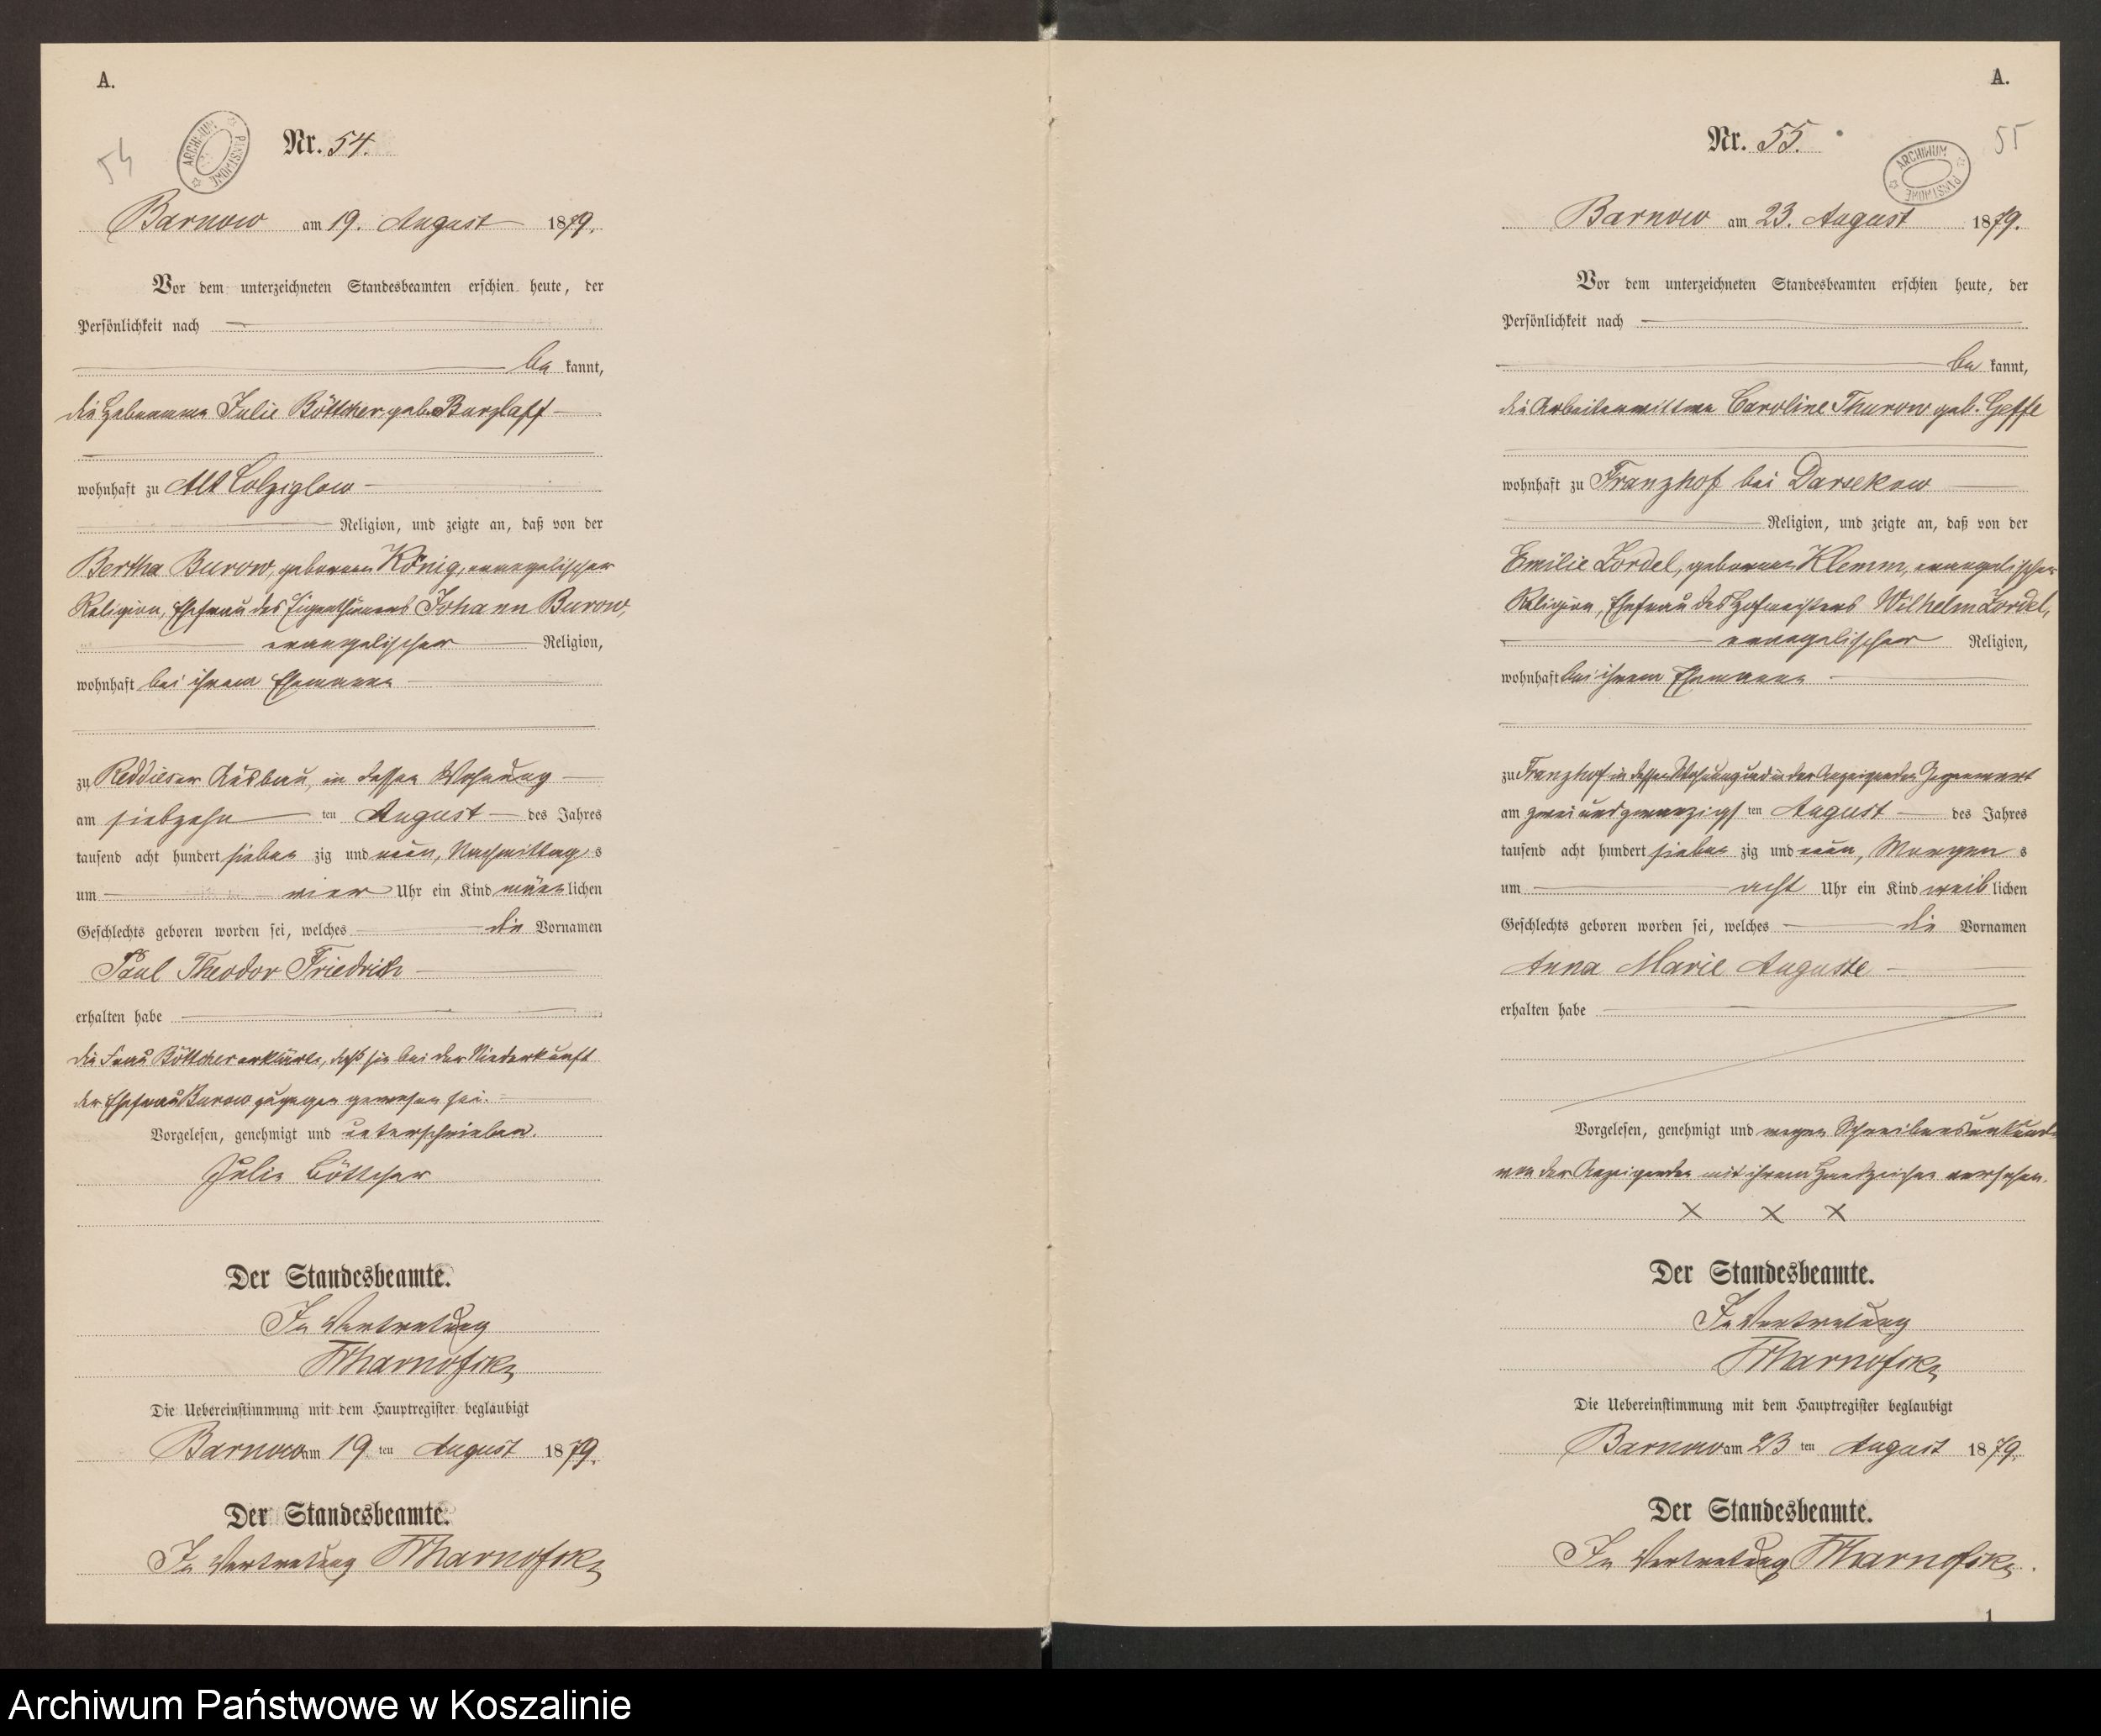 A.
54
ARCHIWUM PAŃSTWOWE
Nr. 54.
Barnow am 19. August 1879.
Vor dem unterzeichneten Standesbeamten erschien heute, der
Persönlichkeit nach
be kannt,
die Hebamme Julie Böttcher geb. Burzlaff
wohnhaft zu Alt Colziglow
Religion, und zeigte an, daß von der
Bertha Burow, geborenen König, evangelischer
Religion, Ehefrau des Eigenthümers Johann Burow,
evangelischer Religion,
wohnhaft bei ihrem Ehemanne
zu Reddieser Ausbau, in dessen Wohnung
am siebzehn ten August des Jahres
tausend acht hundert sieben zig und neun, Nachmittag s
um vier Uhr ein Kind männ lichen
Geschlechts geboren worden sei, welches die Vornamen
Paul Theodor Friedrich
erhalten habe
die Frau Böttcher erklärte, daß sie bei der Niederkunft
der Ehefrau Burow zugegen gewesen sei.
Vorgelesen, genehmigt und unterschrieben.
Julie Böttcher
Der Standesbeamte.
In Vertretung
Die Uebereinstimmung mit dem Hauptregister beglaubigt
Barnow am 19 ten August 1879.
Der Standesbeamte.
In Vertretung
A.
55
ARCHIWUM PAŃSTWOWE
Nr. 55.
Barnow am 23. August 1879.
Vor dem unterzeichneten Standesbeamten erschien heute, der
Persönlichkeit nach
be kannt,
die Arbeiterwittwe Caroline Thurow geb. Geffe
wohnhaft zu Franzhof bei Darsekow
Religion, und zeigte an, daß von der
Emilie Zordel, geborenen Klemm, evangelischer
Religion, Ehefrau des Hofmeisters Wilhelm Zordel,
evangelischer Religion,
wohnhaft bei ihrem Ehemanne
zu Franzhof in dessen Wohnung und in der Anzeigenden Gegenwart
am zwei und zwanzigs ten August des Jahres
tausend acht hundert sieben zig und neun, Morgen s
um acht Uhr ein Kind weib lichen
Geschlechts geboren worden sei, welches die Vornamen
Anna Marie Auguste
erhalten habe
Vorgelesen, genehmigt und wegen Schreibensunkunde
von der Anzeigenden mit ihrem Handzeichen versehen.
X X X
Der Standesbeamte.
In Vertretung
Die Uebereinstimmung mit dem Hauptregister beglaubigt
Barnow am 23 ten August 1879.
Der Standesbeamte.
In Vertretung
1
Archiwum Państwowe w Koszalinie